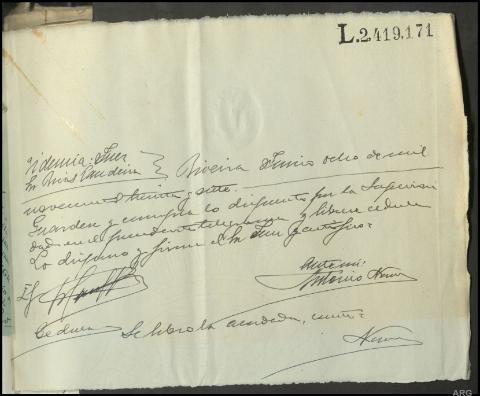 L.2.419.171
Providencia Juez
Sr. Rivas Candeira } Riveira Junio ocho de mil
novecientos treinta y siete.
Guardese y cumplase lo dispuesto por la Superiori
dad en el precedente telegrama y librese cedula
Lo dispuso y firma el Sr Juez y certifico=
Ante mi
Antonio
Cedula Se libro la acordada,
ARG